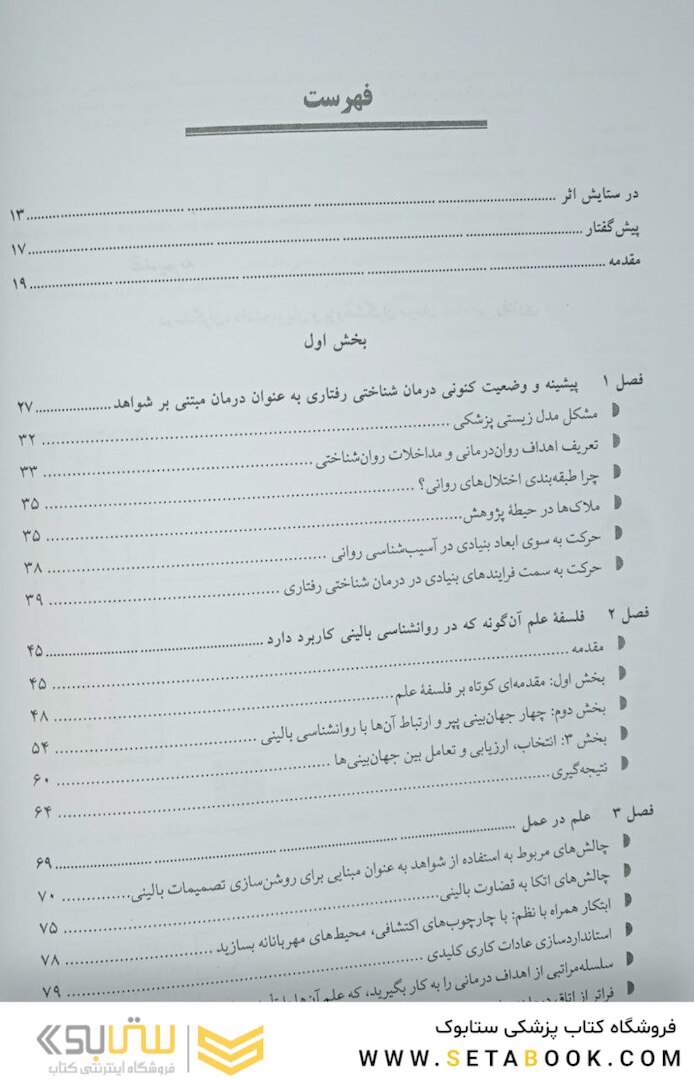 فهرست
در ستایش اثر ........ ۱۳
پیش‌گفتار ........ ۱۷
مقدمه ........ ۱۹
بخش اول
فصل ۱ پیشینه و وضعیت کنونی درمان شناختی رفتاری به عنوان درمان مبتنی بر شواهد ........ ۲۷
مشکل مدل زیستی پزشکی ........ ۳۲
تعریف اهداف روان‌درمانی و مداخلات روان‌شناختی ........ ۳۳
چرا طبقه‌بندی اختلال‌های روانی؟ ........ ۳۵
ملاک‌ها در حیطهٔ پژوهش ........ ۳۵
حرکت به سوی ابعاد بنیادی در آسیب‌شناسی روانی ........ ۳۸
حرکت به سمت فرایندهای بنیادی در درمان شناختی رفتاری ........ ۳۹
فصل ۲ فلسفهٔ علم آن‌گونه که در روانشناسی بالینی کاربرد دارد ........ ۴۵
مقدمه ........ ۴۵
بخش اول: مقدمه‌ای کوتاه بر فلسفهٔ علم ........ ۴۸
بخش دوم: چهار جهان‌بینی پپر و ارتباط آن‌ها با روانشناسی بالینی ........ ۵۴
بخش ۳: انتخاب، ارزیابی و تعامل بین جهان‌بینی‌ها ........ ۶۰
نتیجه‌گیری ........ ۶۴
فصل ۳ علم در عمل ........ ۶۹
چالش‌های مربوط به استفاده از شواهد به عنوان مبنایی برای روشن‌سازی تصمیمات بالینی ........ ۷۰
چالش‌های اتکا به قضاوت بالینی ........ ۷۵
ابتکار همراه با نظم: با چارچوب‌های اکتشافی، محیط‌های مهربانانه بسازید ........ ۷۸
استانداردسازی عادات کاری کلیدی ........ ۷۹
سلسله‌مراتبی از اهداف درمانی را به کار بگیرید، که علم آن‌ها را
فراتر از اتاق
فروشگاه کتاب پزشکی ستابوک
WWW.SETABOOK.COM
ستابوک
فروشگاه اینترنتی کتاب